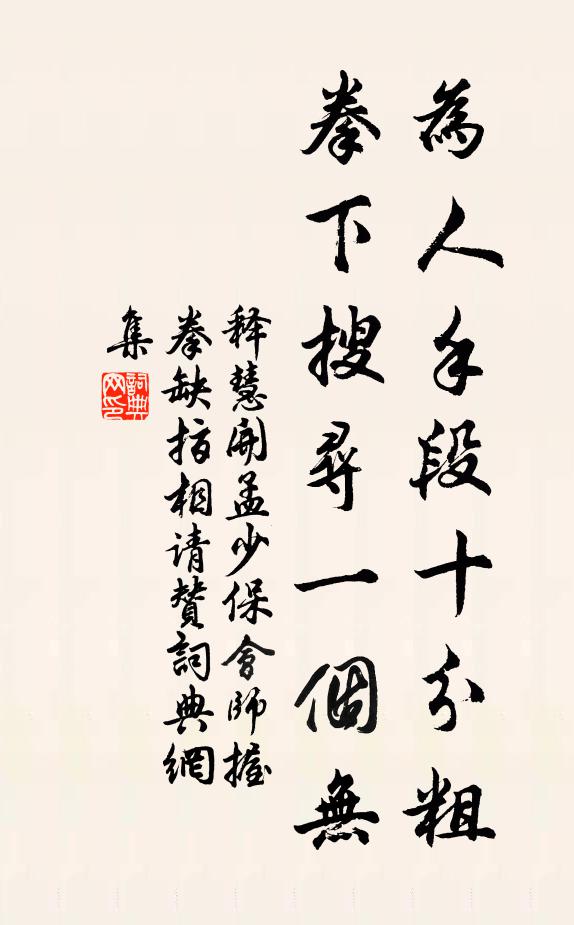 為人手段十分粗
拳下搜尋一個無
释慧開孟少保會師握
拳缺指相请赞詞典網
集
詞典網印